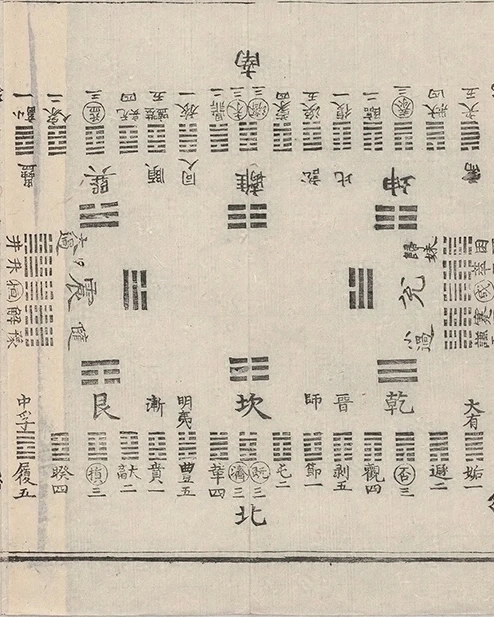 南
夬五
大壯四
泰三
臨二
復一
渙五
蒙四
未三
濟三
鼎二
旅一
噬嗑五
无妄四
益三
家人二
一
需
比
訟
同人
頤
蠱
坤
離
巽
歸妹
兌
小過
困
萃
咸
蹇
謙
大過
震
隨
井
升
恒
解
豫
乾
坎
艮
大有
晉
師
明夷
漸
中孚
姤一
遯二
否三
觀四
剥五
節一
屯二
既三
濟三
革四
豐五
賁一
大畜
損三
睽四
履五
北